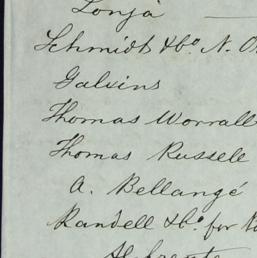 Lonja
Schmidt & Co. N. O
Galvins
Thomas Worrall
Thomas Russell
A. Bellangé
Randell & Co. for
Al frente